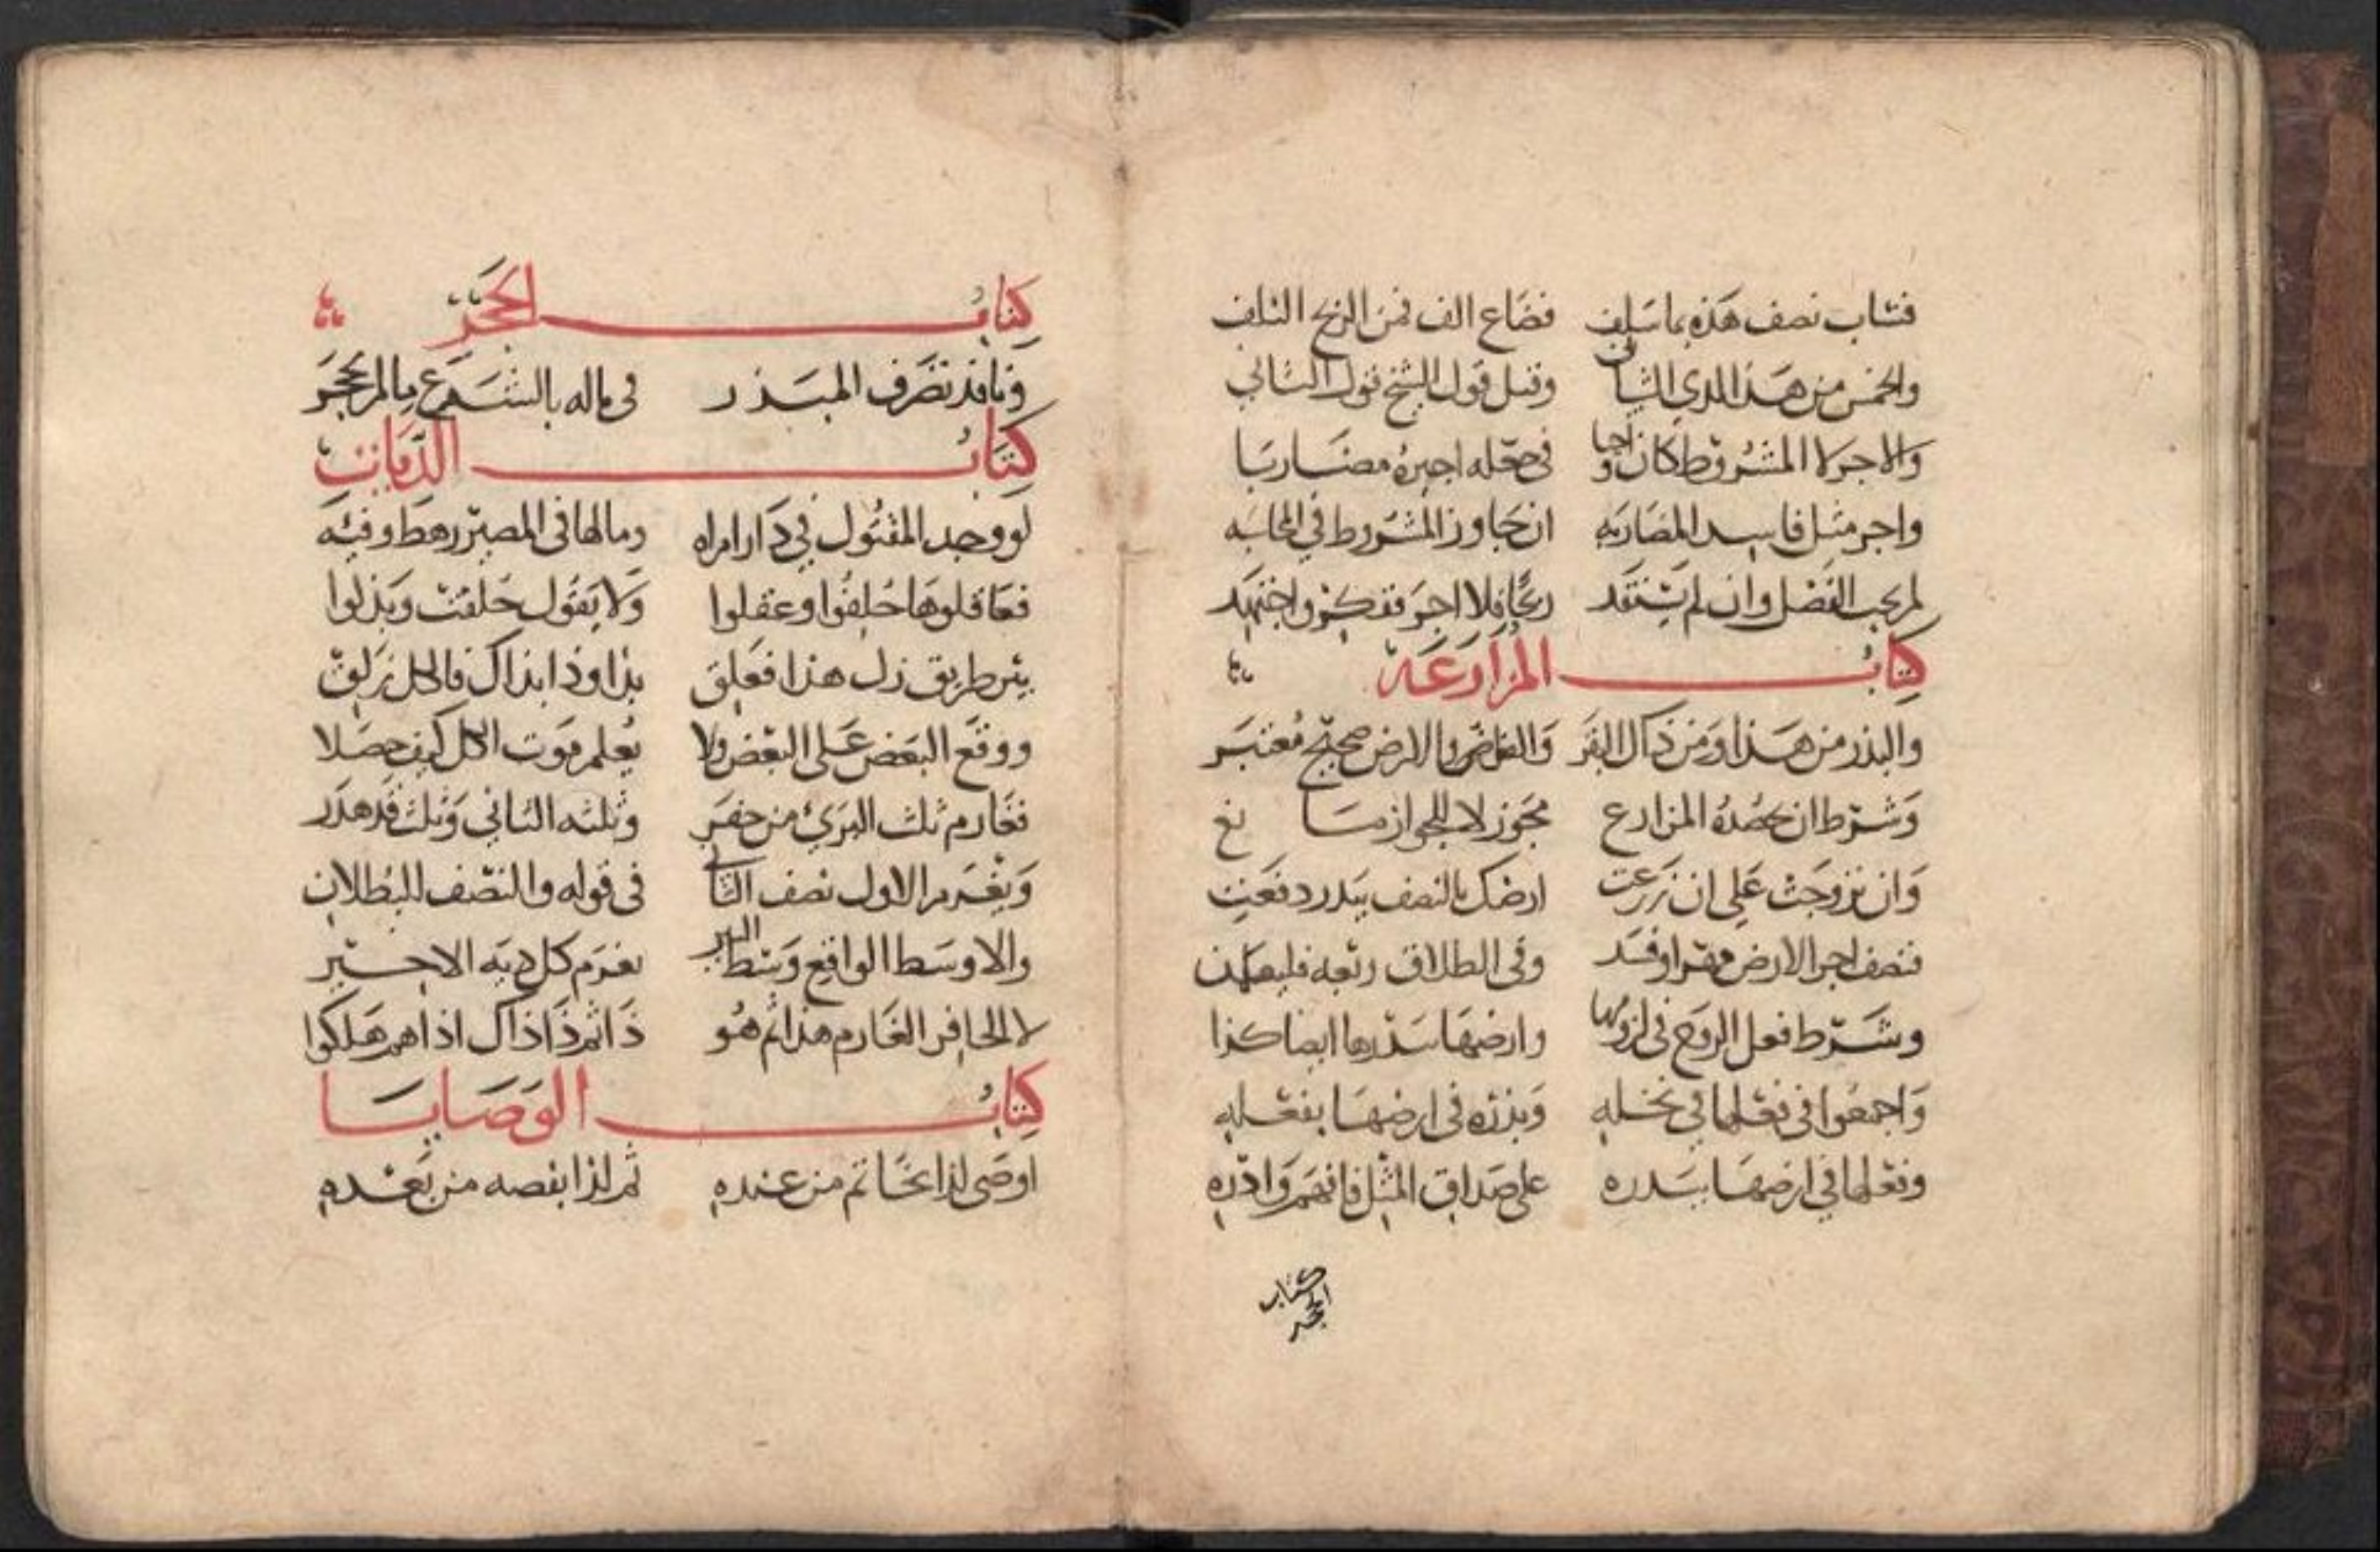 فشاب نصف هذه بما سلف فضاع الف فمن الربح التلف
والخمس من هذا لذي الثان وقبل قول الشيخ قول الثاني
والاجر لا المشروط كان واجبا في جعله اجيره مضاربا
واجر مثل فاسد المضاربه ان جاوز المشروط في المحاسبه
لم يجب الفضل وان لم يستفد ربحا فلا اجر ففكر واجتهد
كتاب المزارعة
والبذر من هذا ومن ذاك البقر والقاض بالارض صحيح معتبر
وشرط ان يحصده المزارع مجوز لا للجواز مانع
وان تزوجت على ان زرعت ارضك بالنصف ببذر دفعت
فنصف اجر الارض مهرا وفسد وفي الطلاق ربعه
وشرط فعل الزوج في لزومها وارضها ببذرها ايضا كذا
واجمعوا في فعلها في نخله وبذره في ارضها بفعله
وفعلها في ارضها ببذره على صداق المثل فافهم وادره
كتاب الحجر
كتاب الحجر
ونافذ تصرف المبذر في ماله بالشرع ما لم يحجر
كتاب الديات
لو وجد المقتول في دار امراه وما لها في المصر رهط وفيه
فعاقلوها حلفوا وعقلوا ولا يقول حلفت وبذلوا
بئر طريق زل هذا فعلق بذا وذا بذاك فالكل زلق
ووقع البعض على البعض ولا يعلم موت الكل كيف حصلا
فغارم ثلث البرئ من حفر وثلثه الثاني وثلث قد هدر
ويغرم الاول نصف الثاني في قوله والنصف للبطلان
والاوسط الواقع وسط البير يغرم كل دية الاخير
لا الحافر الغارم هذا ثم هو ذا ثم ذا ذاك اذا هم هلكوا
كتاب الوصايا
اوصى لذا بخاتم من عنده ثم لذا بفصه من بعده